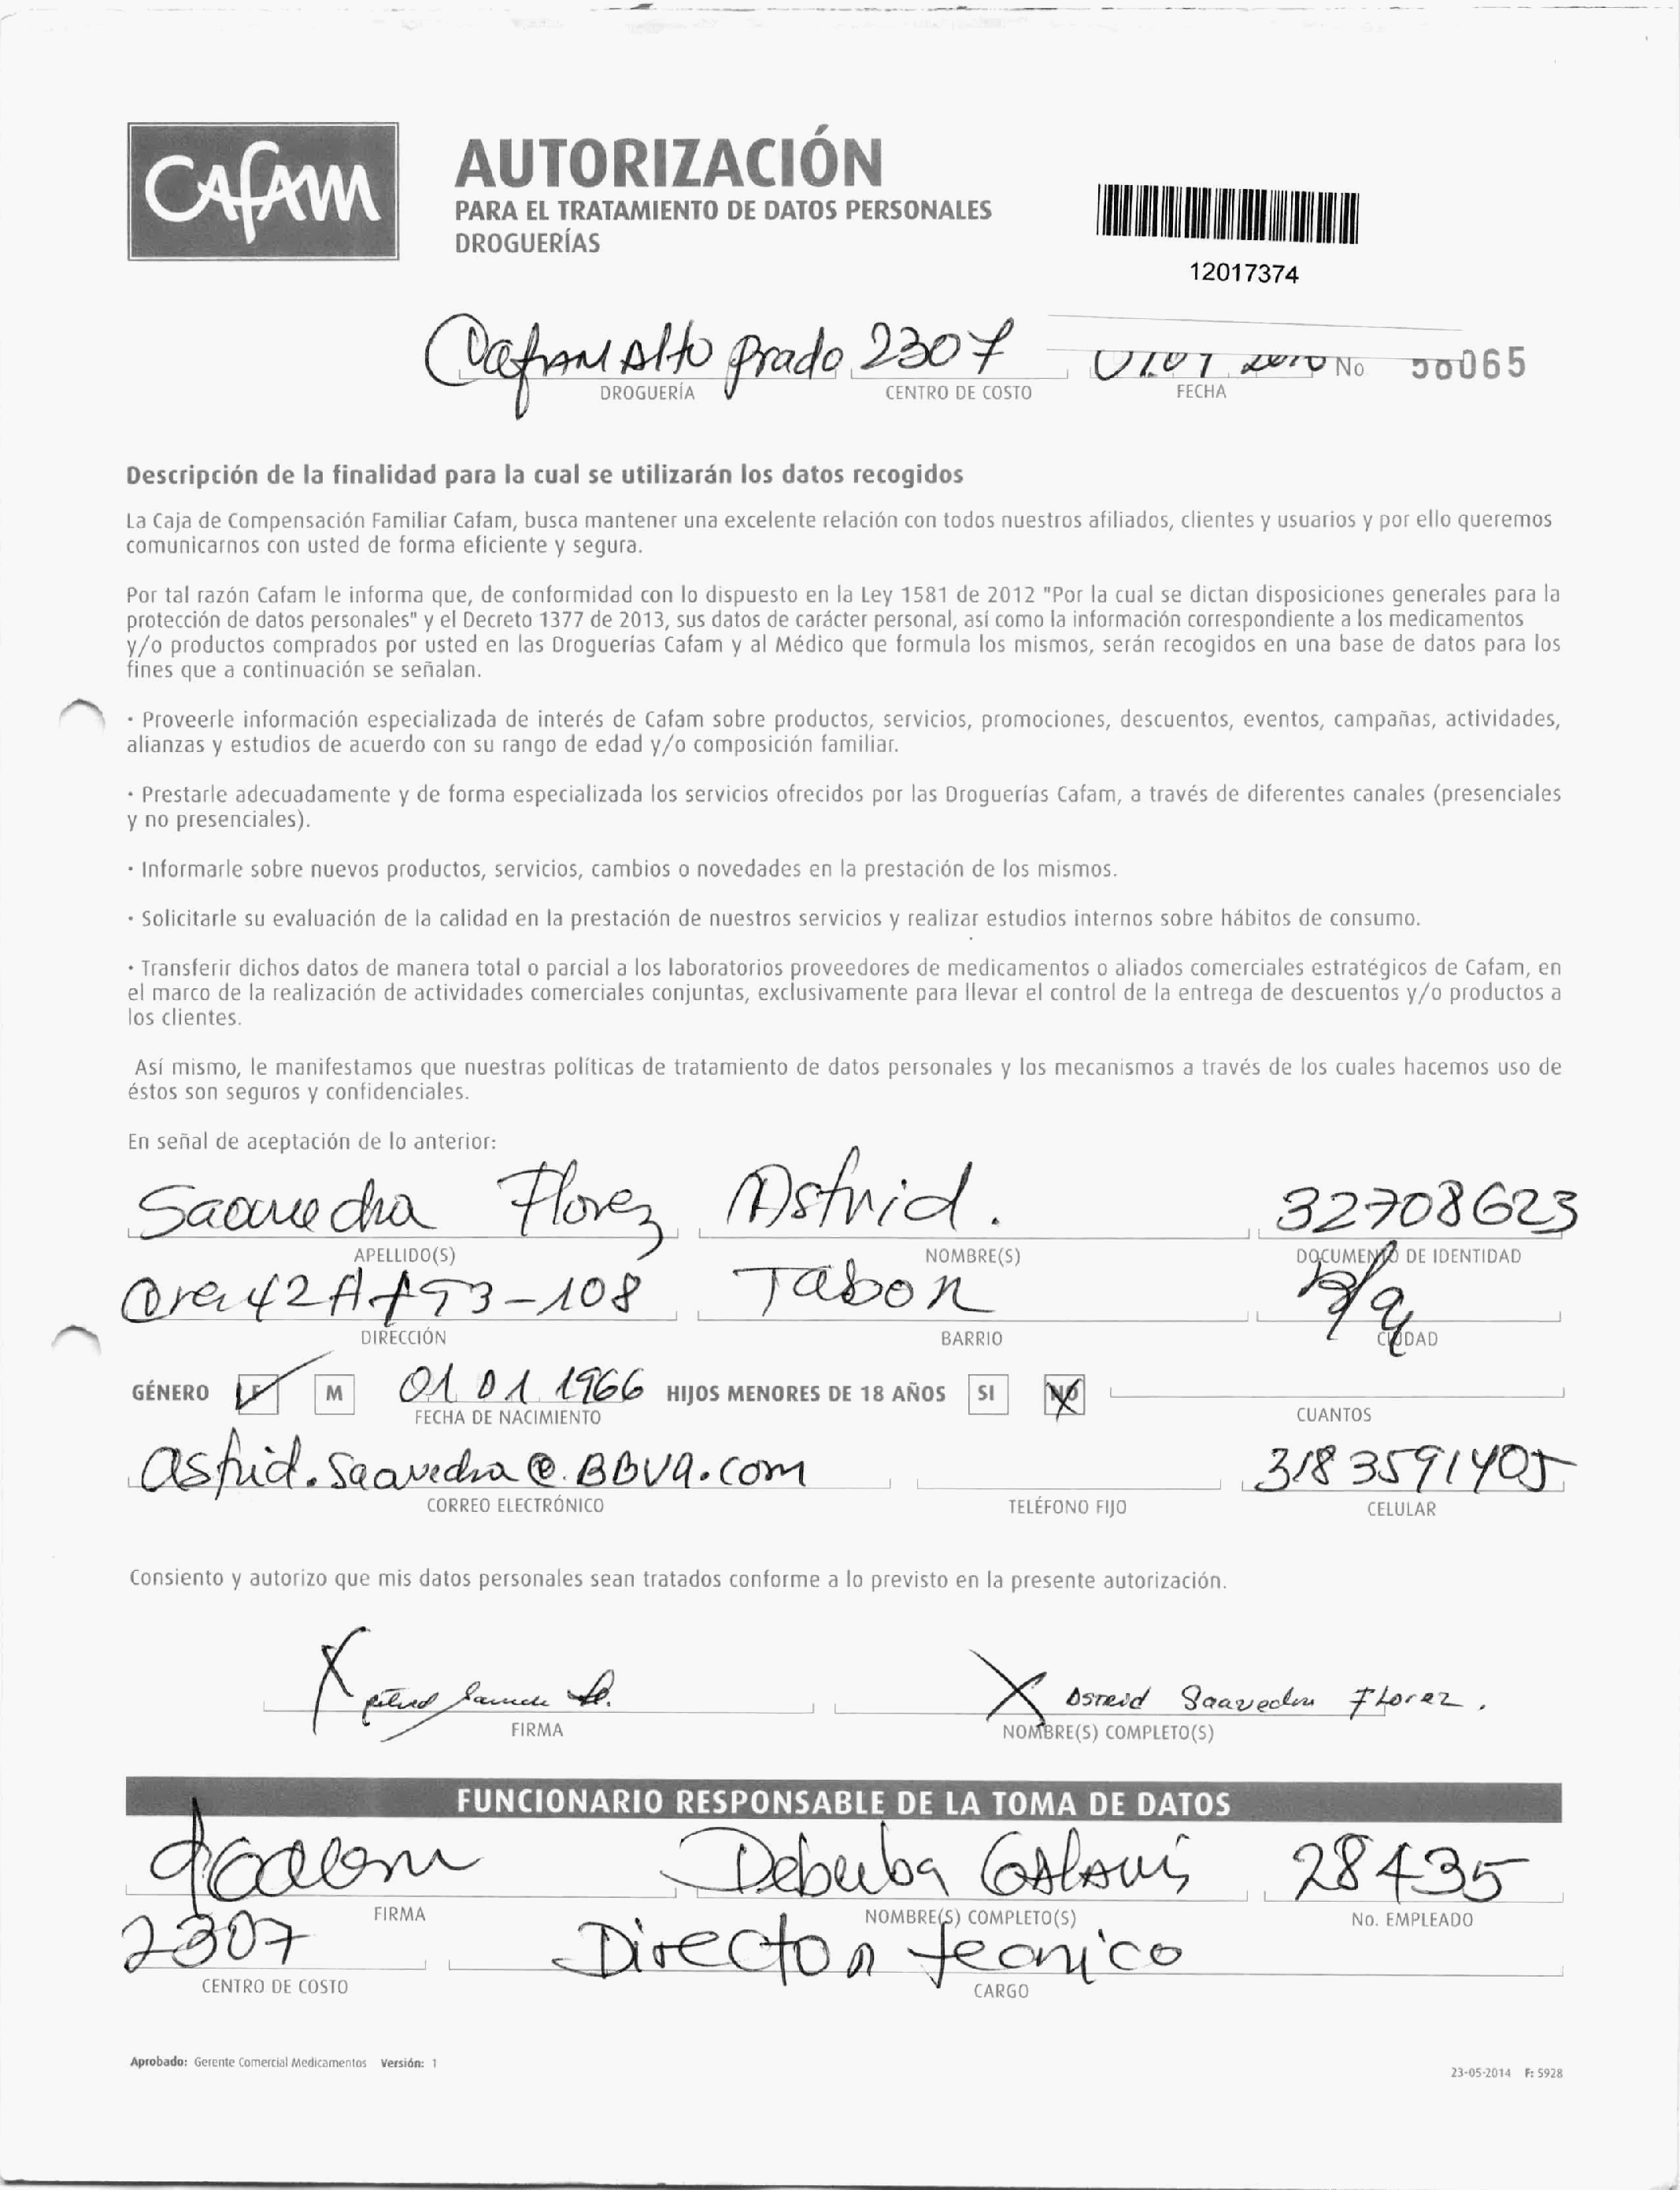 CAFAM
AUTORIZACIÓN
PARA EL TRATAMIENTO DE DATOS PERSONALES
DROGUERÍAS
12017374
Cafam Alto prado 2307 No 065
DROGUERÍA CENTRO DE COSTO FECHA
Descripción de la finalidad para la cual se utilizarán los datos recogidos
La Caja de Compensación Familiar Cafam, busca mantener una excelente relación con todos nuestros afiliados, clientes y usuarios y por ello queremos
comunicarnos con usted de forma eficiente y segura.
Por tal razón Cafam le informa que, de conformidad con lo dispuesto en la Ley 1581 de 2012 "Por la cual se dictan disposiciones generales para la
protección de datos personales" y el Decreto 1377 de 2013, sus datos de carácter personal, así como la información correspondiente a los medicamentos
y/o productos comprados por usted en las Droguerías Cafam y al Médico que formula los mismos, serán recogidos en una base de datos para los
fines que a continuación se señalan.
· Proveerle información especializada de interés de Cafam sobre productos, servicios, promociones, descuentos, eventos, campañas, actividades,
alianzas y estudios de acuerdo con su rango de edad y/o composición familiar.
· Prestarle adecuadamente y de forma especializada los servicios ofrecidos por las Droguerías Cafam, a través de diferentes canales (presenciales
y no presenciales).
· Informarle sobre nuevos productos, servicios, cambios o novedades en la prestación de los mismos.
· Solicitarle su evaluación de la calidad en la prestación de nuestros servicios y realizar estudios internos sobre hábitos de consumo.
· Transferir dichos datos de manera total o parcial a los laboratorios proveedores de medicamentos o aliados comerciales estratégicos de Cafam, en
el marco de la realización de actividades comerciales conjuntas, exclusivamente para llevar el control de la entrega de descuentos y/o productos a
los clientes.
Así mismo, le manifestamos que nuestras políticas de tratamiento de datos personales y los mecanismos a través de los cuales hacemos uso de
éstos son seguros y confidenciales.
En señal de aceptación de lo anterior:
Saavedra Florez Astrid. 32708623
APELLIDO(S) NOMBRE(S) DOCUMENTO DE IDENTIDAD
Cra 42A # 93-108 Tabor B/q
DIRECCIÓN BARRIO CIUDAD
GÉNERO F M 01 01 1966 HIJOS MENORES DE 18 AÑOS SI NO
FECHA DE NACIMIENTO CUANTOS
astrid.saavedra@.BBVA.com 3183591405
CORREO ELECTRÓNICO TELÉFONO FIJO CELULAR
Consiento y autorizo que mis datos personales sean tratados conforme a lo previsto en la presente autorización.
X X Astrid Saavedra Florez.
FIRMA NOMBRE(S) COMPLETO(S)
FUNCIONARIO RESPONSABLE DE LA TOMA DE DATOS
28435
FIRMA NOMBRE(S) COMPLETO(S) No. EMPLEADO
2307 Director tecnico
CENTRO DE COSTO CARGO
Aprobado: Gerente Comercial Medicamentos Versión: 1
23-05-2014 F: 5928